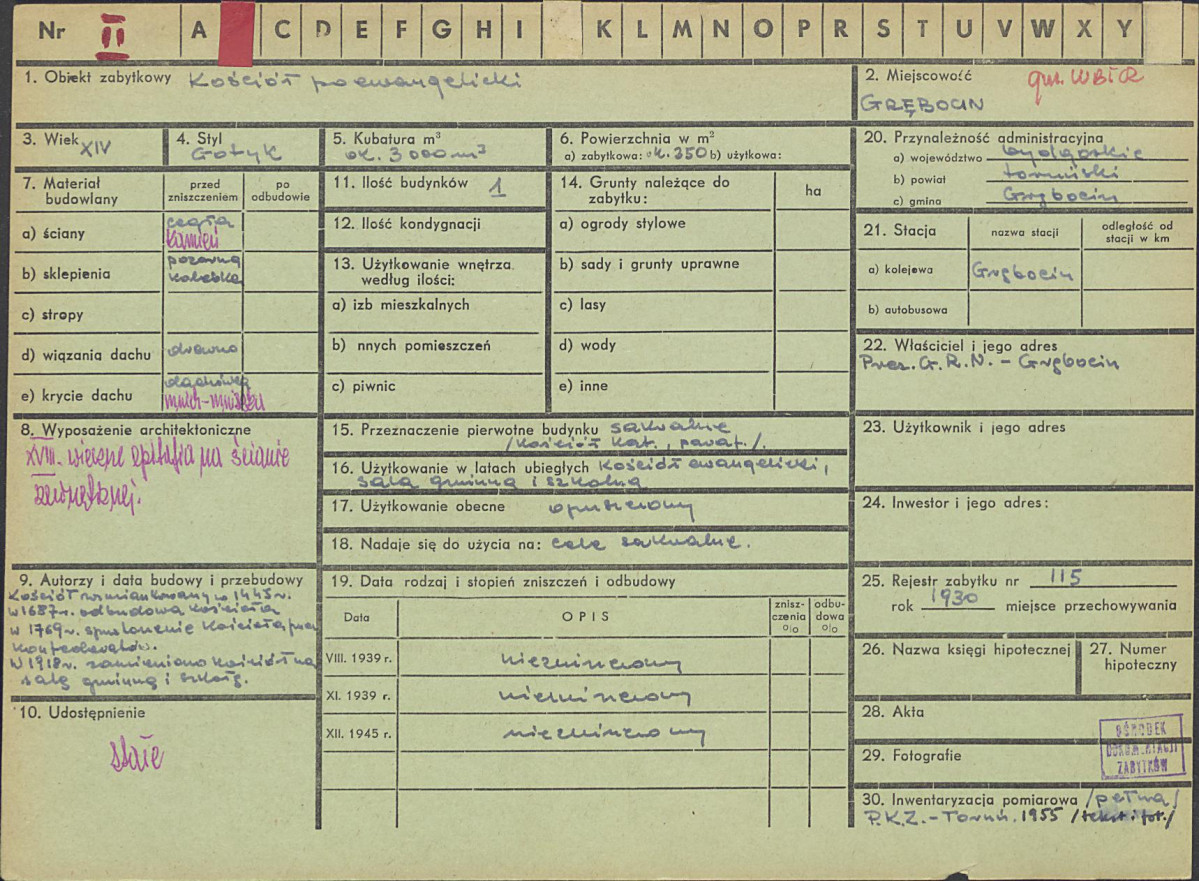 Nr II A C D E F G H I K L M N O P R S T U V W X Y
1. Obiekt zabytkowy Kościół poewangelicki
2. Miejscowość
GRĘBOCIN
3. Wiek XIV
4. Styl Gotyk
5. Kubatura m³
ok. 3000 m³
6. Powierzchnia w m²
a) zabytkowa: ok. 350 b) użytkowa:
7. Materiał budowlany
przed zniszczeniem
po odbudowie
a) ściany cegła
kamień
b) sklepienia pozorna
kolebka
c) stropy
d) wiązania dachu drewno
e) krycie dachu dachówka
mnich-mniszka
8. Wyposażenie architektoniczne
XVIII. wieczne epitafia na ścianie
zewnętrznej.
9. Autorzy i data budowy i przebudowy
Kościół wzmiankowany w 1445 r.
w 1687 r. odbudowa kościoła
w 1769 r. spustoszenie kościoła przez
Konfederatów.
W 1918 r. zamieniono kościół na
salę gminną i szkołę.
10. Udostępnienie
stałe
11. Ilość budynków 1
12. Ilość kondygnacji
13. Użytkowanie wnętrza
według ilości:
a) izb mieszkalnych
b) nnych pomieszczeń
c) piwnic
14. Grunty należące do
zabytku:
ha
a) ogrody stylowe
b) sady i grunty uprawne
c) lasy
d) wody
e) inne
15. Przeznaczenie pierwotne budynku sakralne
/Kościół Kat., paraf./.
16. Użytkowanie w latach ubiegłych Kościół ewangelicki,
sala gminna i szkolna
17. Użytkowanie obecne opuszczony
18. Nadaje się do użycia na: cele sakralne.
19. Data rodzaj i stopień zniszczeń i odbudowy
Data
OPIS
znisz-
czenia
%
odbu-
dowa
%
VIII. 1939 r. niezniszczony
XI. 1939 r. niezniszczony
XII. 1945 r. niezniszczony
20. Przynależność administracyjna
a) województwo bydgoskie
b) powiat toruński
c) gmina Grębocin
21. Stacja
nazwa stacji
odległość od
stacji w km
a) kolejowa Grębocin
b) autobusowa
22. Właściciel i jego adres
Prez. G.R.N. - Grębocin
23. Użytkownik i jego adres
24. Inwestor i jego adres:
25. Rejestr zabytku nr 115
rok 1930 miejsce przechowywania
26. Nazwa księgi hipotecznej
27. Numer
hipoteczny
28. Akta
29. Fotografie
OŚRODEK
DOKUMENTACJI
ZABYTKÓW
30. Inwentaryzacja pomiarowa /pełna/
P.K.Z. - Toruń. 1955 /tekst i fot./